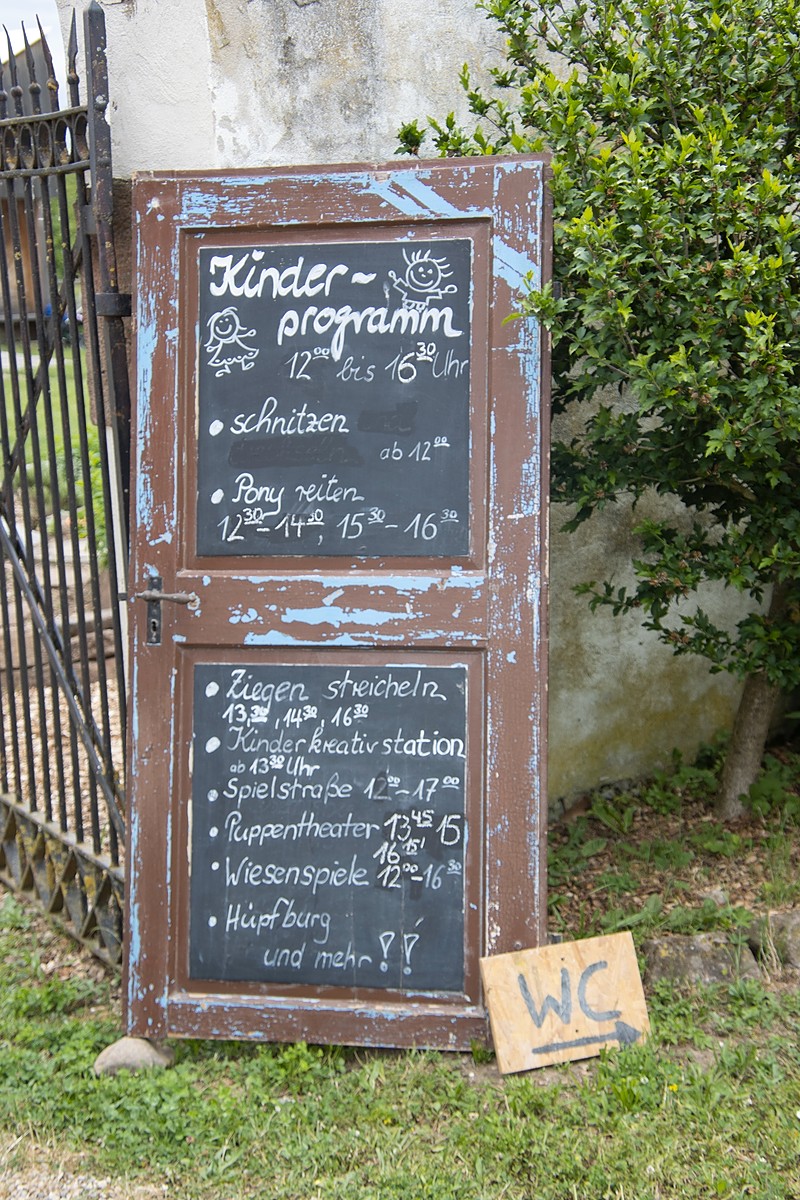 Kinder-
programm
12⁰⁰ bis 16³⁰ Uhr
• schnitzen
ab 12⁰⁰
• Pony reiten
12³⁰-14³⁰, 15³⁰-16³⁰
• Ziegen streicheln
13³⁰, 14³⁰, 16³⁰
• Kinderkreativstation
ab 13³⁰ Uhr
• Spielstraße 12⁰⁰-17⁰⁰
• Puppentheater 13⁴⁵ 15
16¹⁵'
• Wiesenspiele 12⁰⁰-16³⁰
• Hüpfburg
und mehr!!
WC